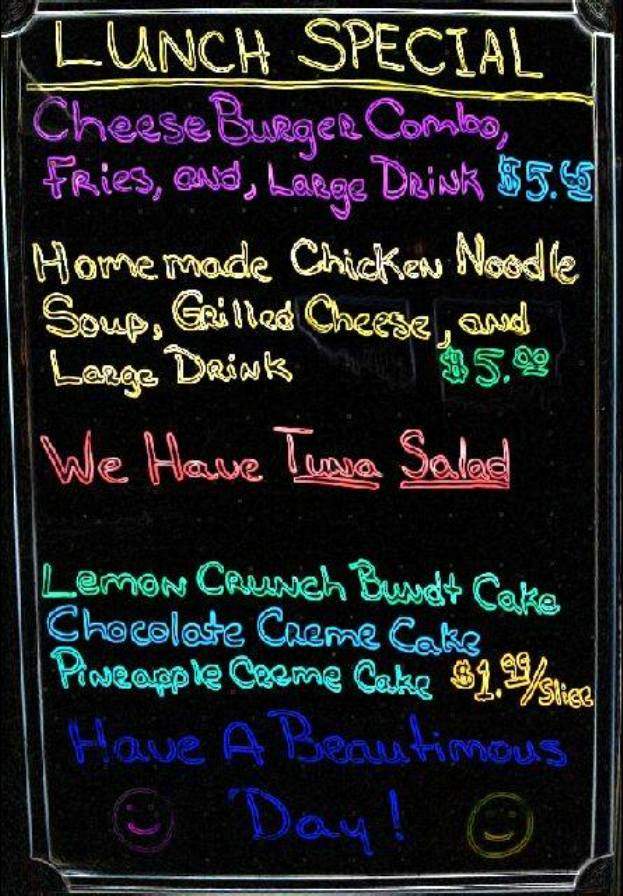 LUNCH SPECIAL
Cheese Burger Combo,
Fries, and, Large Drink $5.65
Homemade Chicken Noodle
Soup, Grilled Cheese, and
Large Drink $5.00
We Have Tuna Salad
Lemon Crunch Bundt Cake
Chocolate Creme Cake
Pineapple Creme Cake $1.99/Slice
Have A Beautimous
Day!